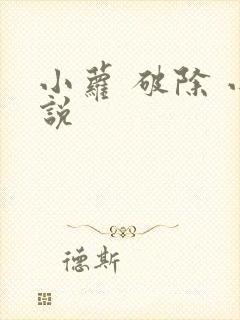 小蘿 破除 小
說
德斯